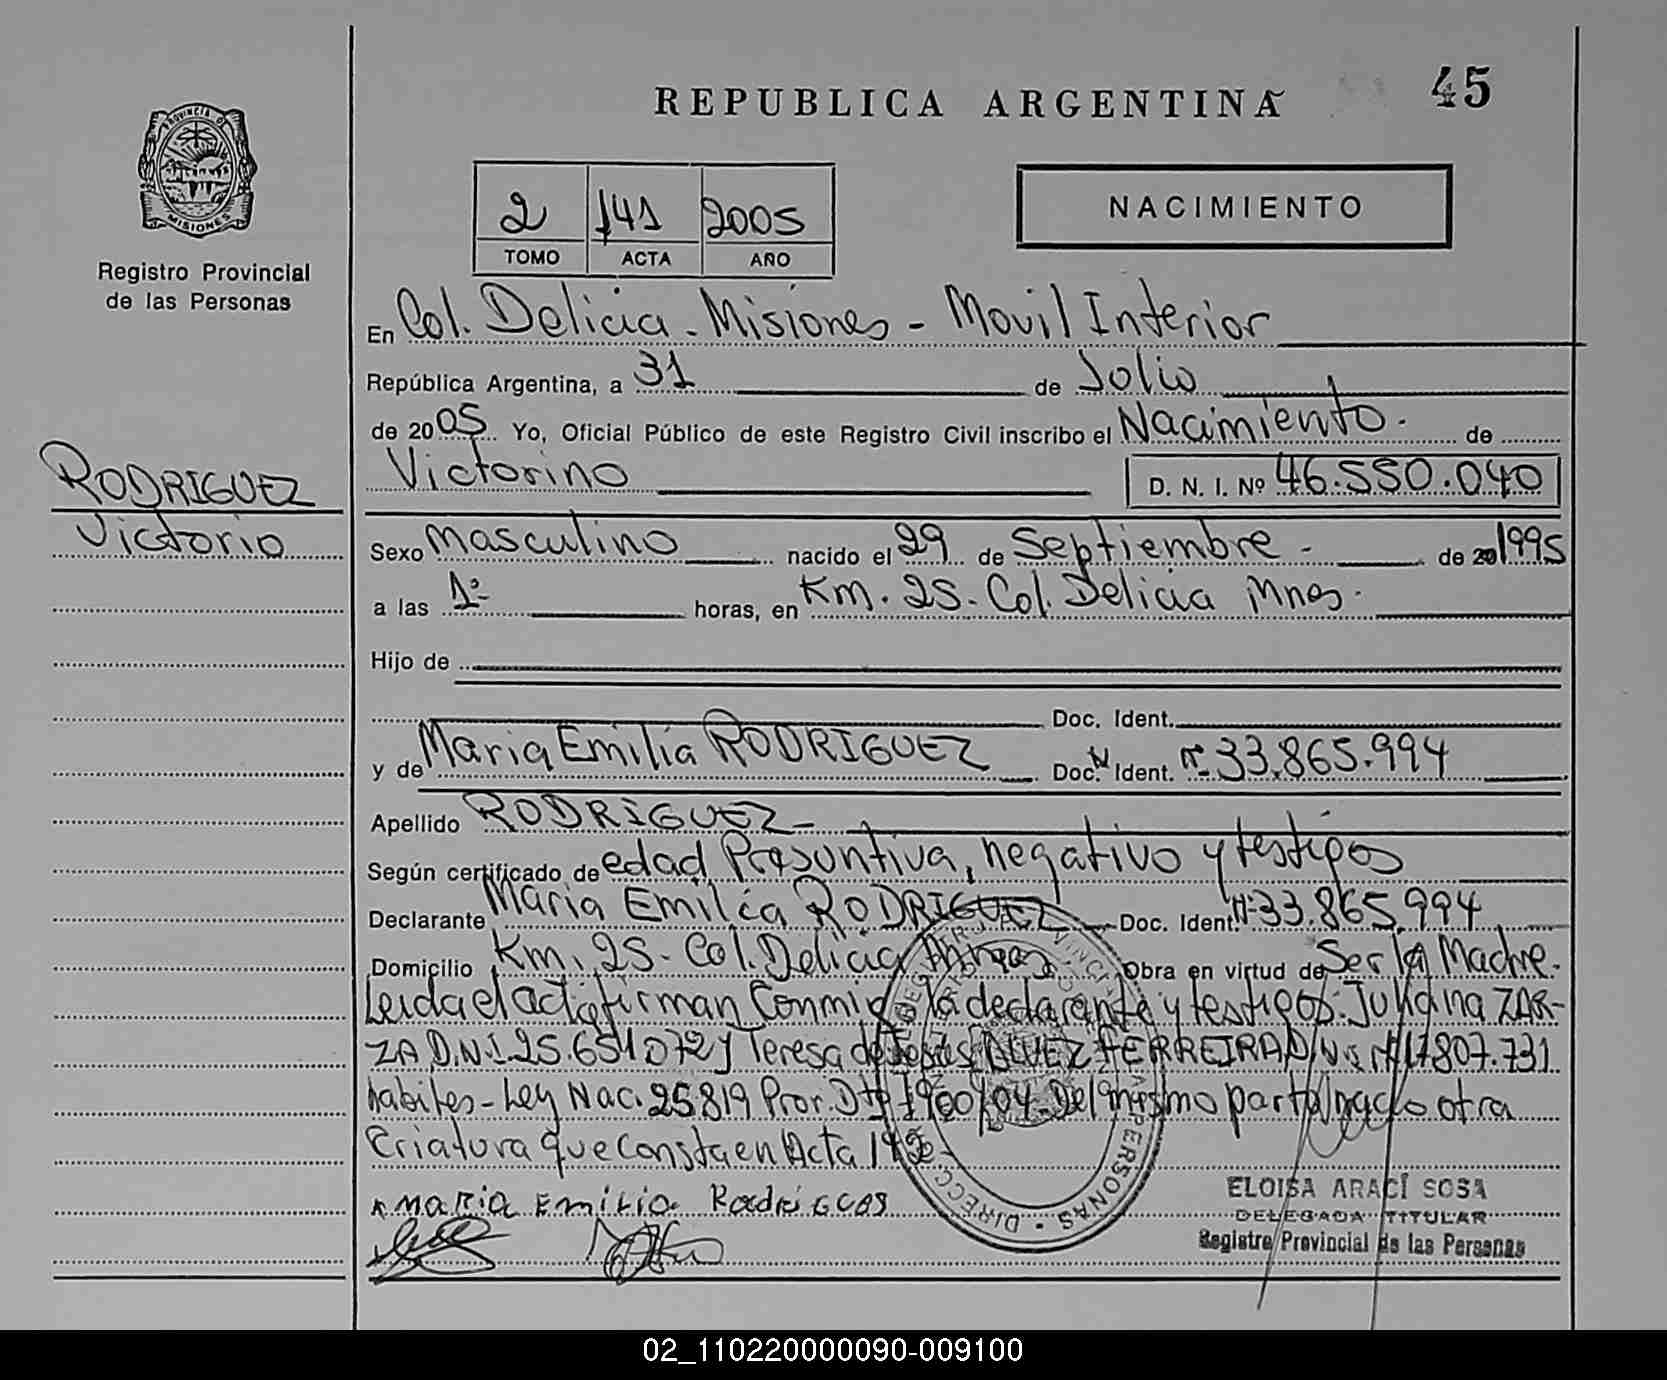 REPUBLICA ARGENTINA
45
PROVINCIA DE
MISIONES
Registro Provincial
de las Personas
2 141 2005
TOMO ACTA AÑO
NACIMIENTO
En Col. Delicia - Misiones - Movil Interior
República Argentina, a 31 de Jolio
de 2005 Yo, Oficial Público de este Registro Civil inscribo el Nacimiento. de
Victorino D. N. I. Nº 46.550.040
RODRIGUEZ
Victorio
Sexo Masculino nacido el 29 de Septiembre - de 20 1995
a las 1º horas, en Km. 25. Col. Delicia Mnes.
Hijo de
Doc. Ident.
y de Maria Emilia RODRIGUEZ Doc. N Ident. Nº 33.865.994
Apellido RODRIGUEZ
Según certificado de edad Presuntiva, negativo y testigos
Declarante Maria Emilia RODRIGUEZ Doc. Ident. Nº 33.865.994
Domicilio Km. 25. Col. Delicia Mnes Obra en virtud de Ser la Madre.
Leida el acta firman Conmigo la declarante y testigos: Juliana ZAR-
ZA D.N.I. 25.651.072 y Teresa de FERREIRA D.N.I. Nº 17807.731
habiles - Ley Nac. 25819 Pror. Dto 1900/04. Del mismo parto nacio otra
Criatura que Consta en Acta 142-
x MARIA EMILIA RodriGues
ELOISA ARACÍ SOSA
DELEGADA TITULAR
Registro Provincial de las Personas
02_110220000090-009100